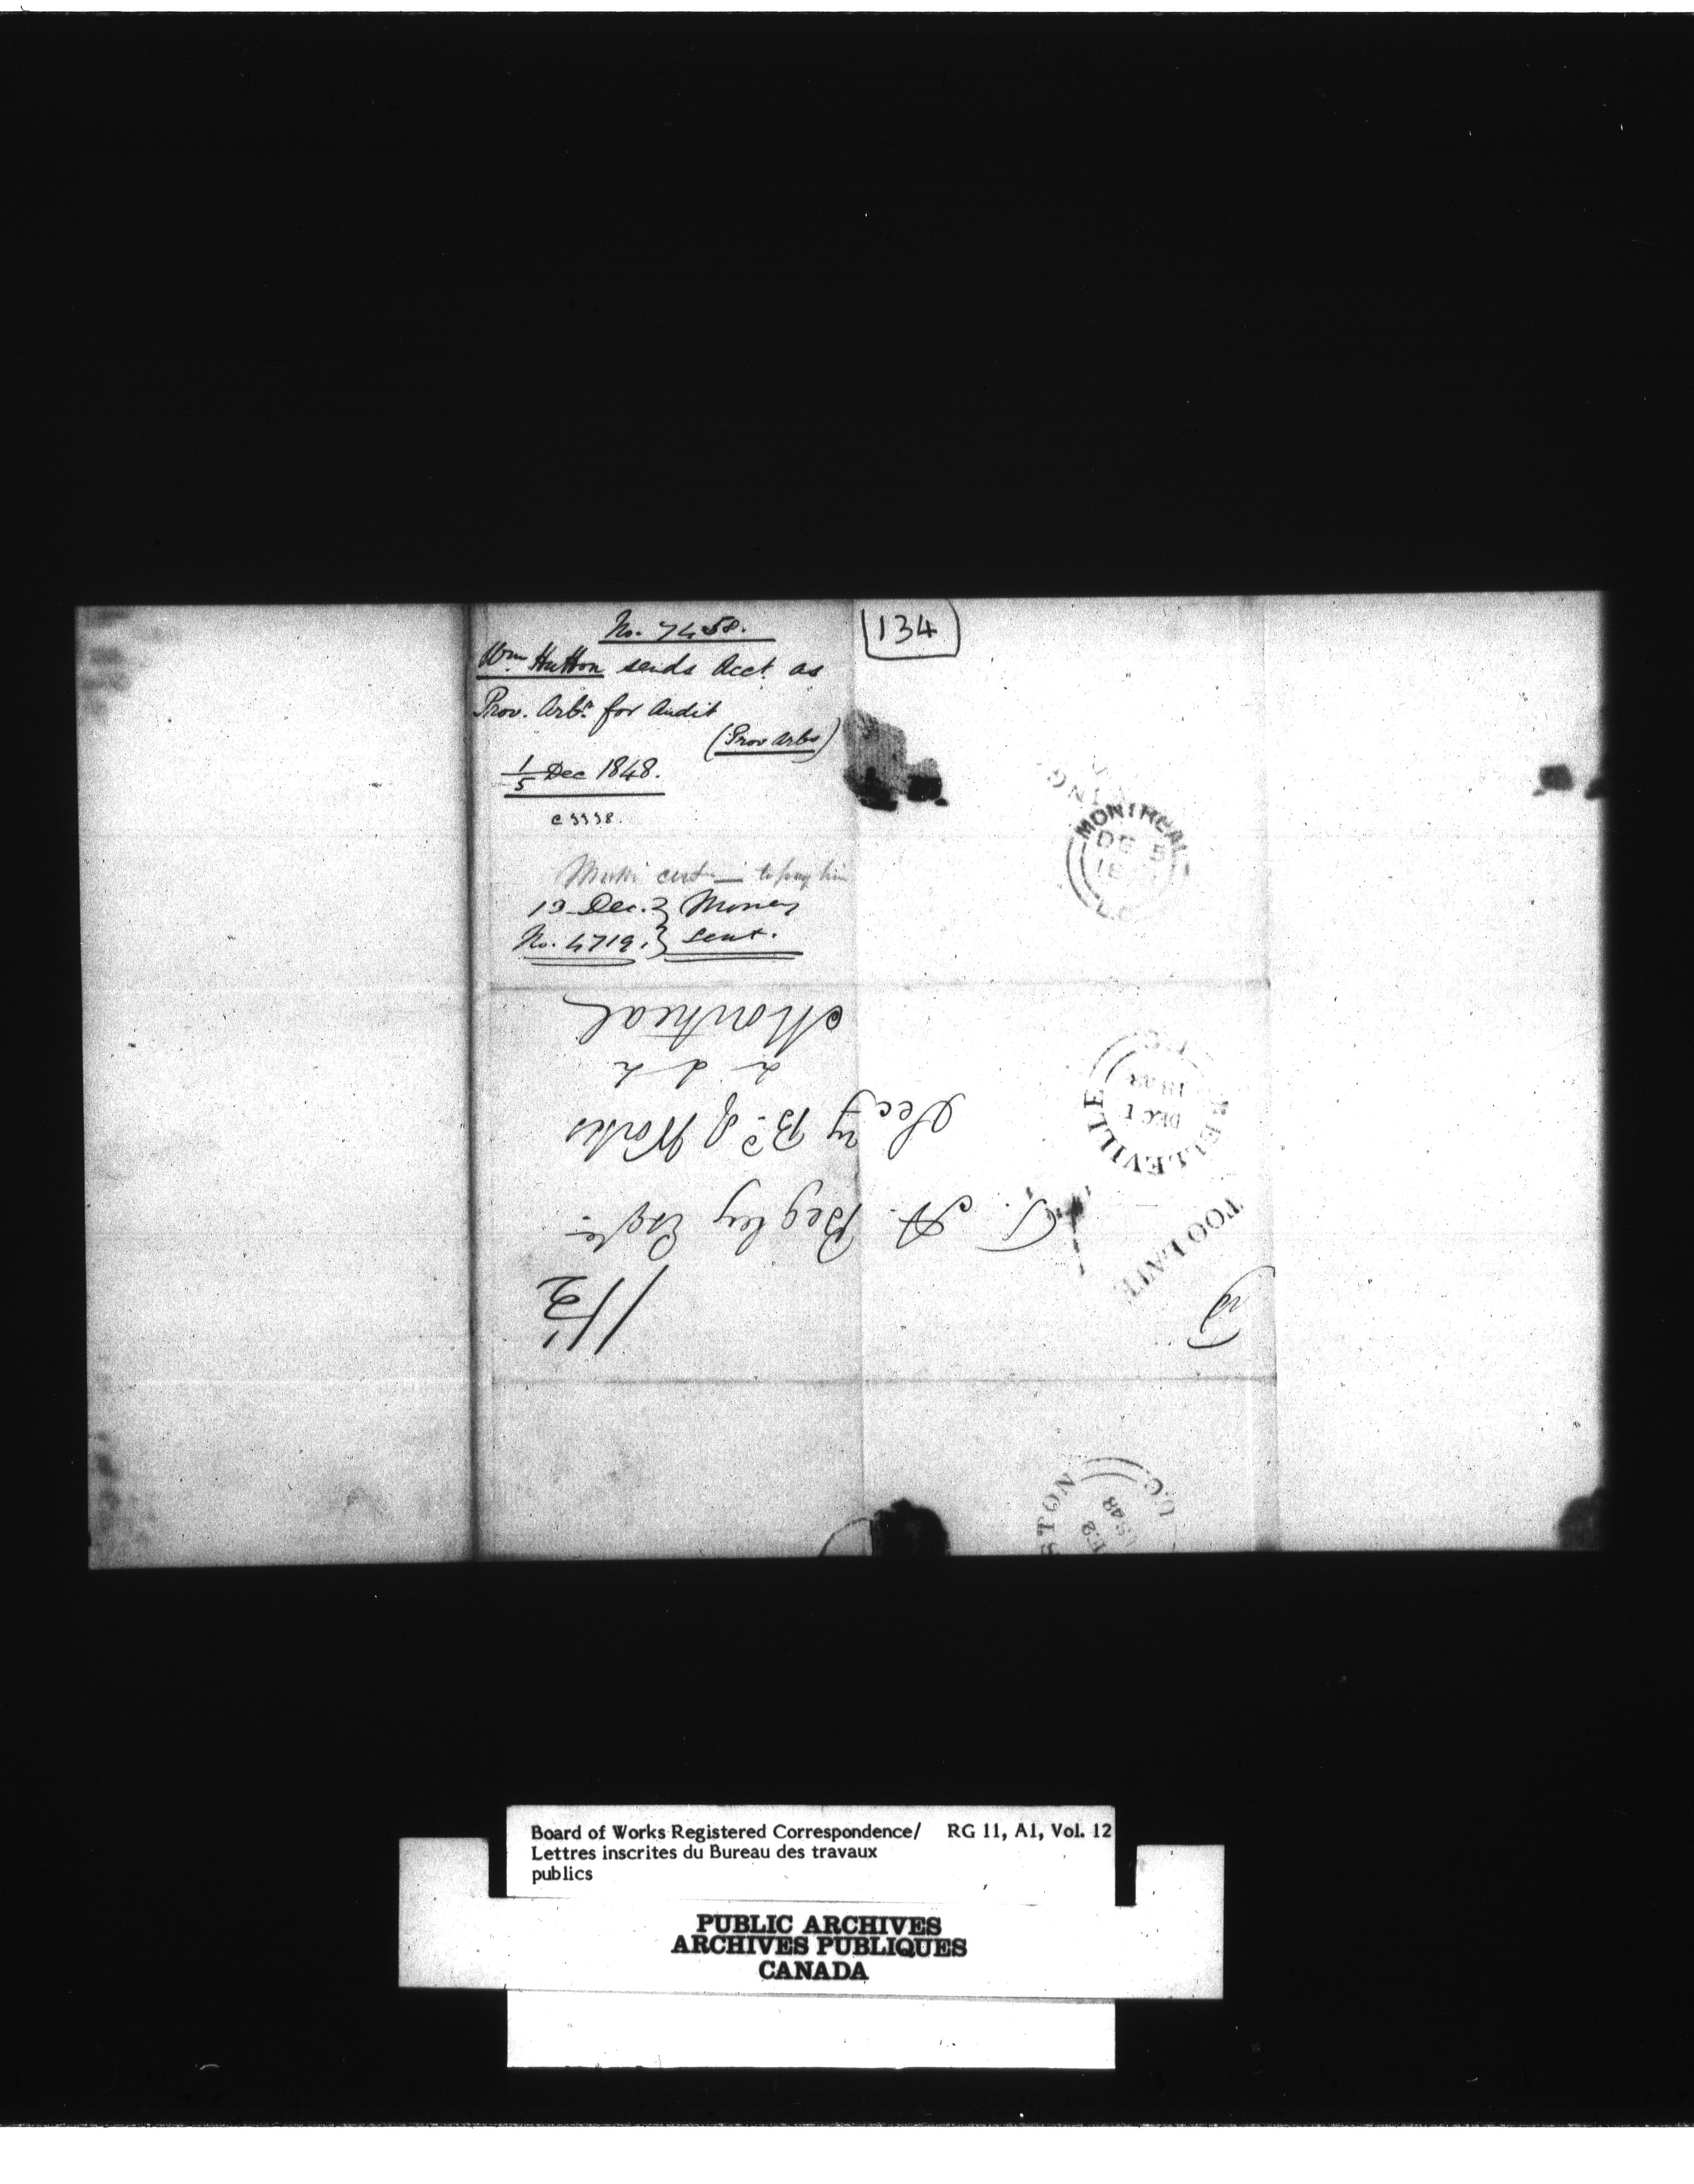 No. 7458.
Wm Hutton sends Acct. as
Prov. Arbr. for Audit
(Prov Arbs)
1/5 Dec 1848.
134
MONTREAL
DE 5
L.C
cert — to pay him
13 Dec. } Money
No. 4719. } sent.
Pd
1/1½
TOO LATE
T. A. Begley Esqre
Secy Bd. of Works
&c &c
Montreal
BELLEVILLE
DEC 1
1848
U.C
STON
E2
1848
U.C.
Board of Works Registered Correspondence/ RG 11, A1, Vol. 12
Lettres inscrites du Bureau des travaux
publics
PUBLIC ARCHIVES
ARCHIVES PUBLIQUES
CANADA